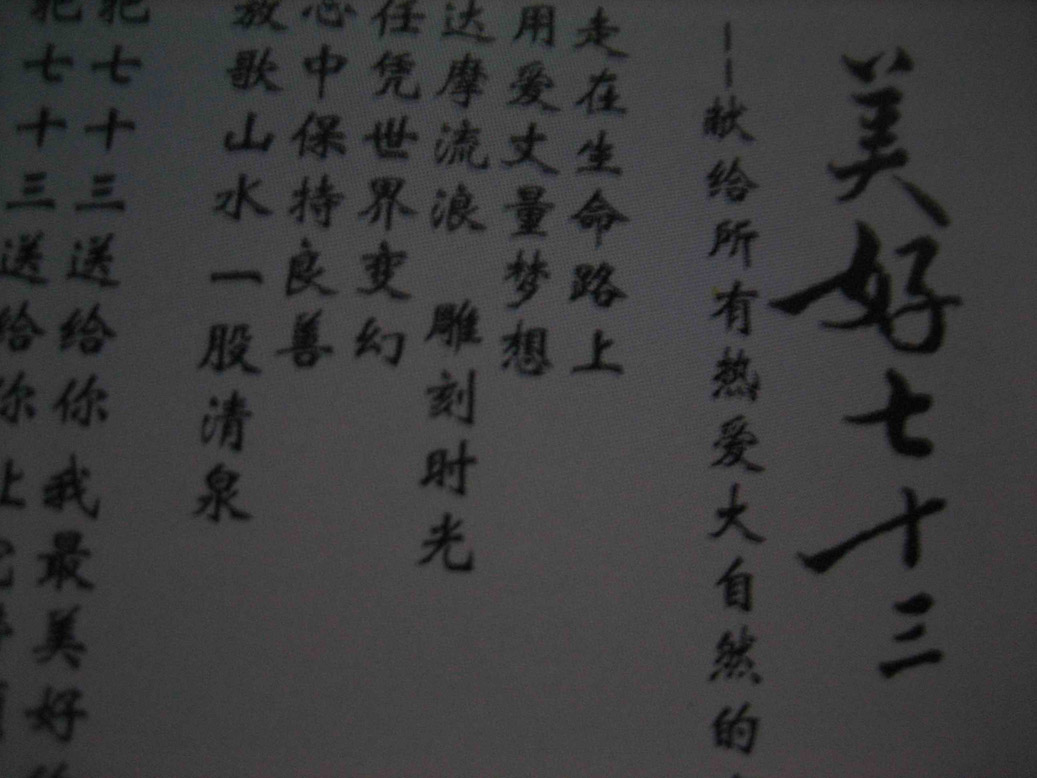 美好七十三
——献给所有热爱大自然的
走在生命路上
用爱丈量梦想
达摩流浪 雕刻时光
任凭世界变幻
心中保持良善
放歌山水一股清泉
把七十三送给你 我最美好
把七十三送给你 让